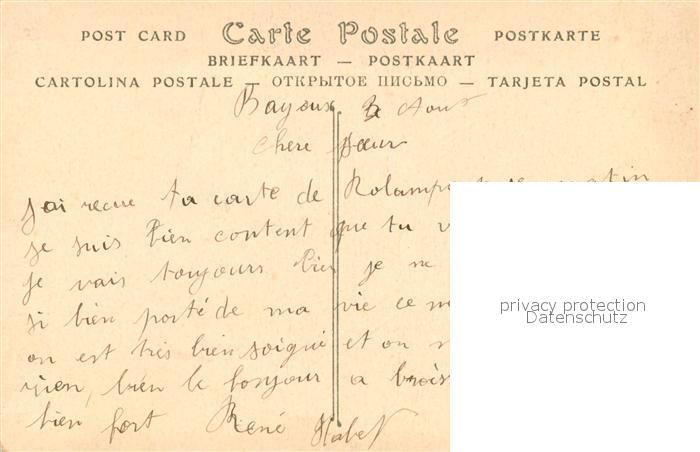 POST CARD Carte Postale POSTKARTE
BRIEFKAART — POSTKAART
CARTOLINA POSTALE — ОТКРЫТОЕ ПИСЬМО — TARJETA POSTAL
Aout
chere sœur
j'ai recue ta carte de
je suis bien content que tu
je vais toujours bien je ne
si bien porté de ma vie ce
on est très bien soigné et on
rien, bien le bonjour a
bien fort René
privacy protection
Datenschutz